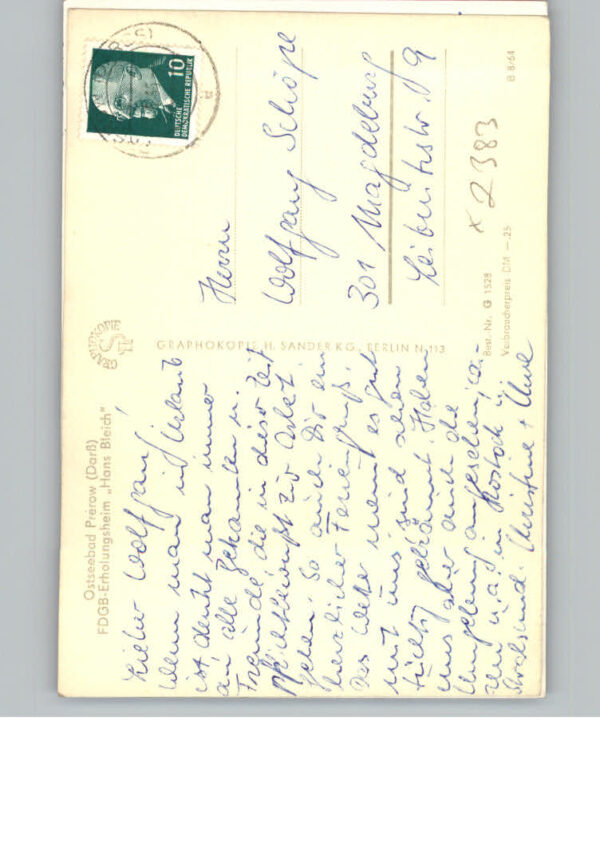 Ostseebad Prerow (Darß)
FDGB-Erholungsheim „Hans Bleich"
Lieber Wolfgang!
Wenn man in Urlaub
ist denkt man immer
an alle Bekannten u.
Freunde die in dieser Zeit
pflichtbewußt zur Arbeit
gehen. So auch Dir ein
herzlicher Feriengruß.
Das Wetter meint es gut
mit uns, sind schon
tüchtig gebräunt. Haben
uns aber auch die
Umgebung angesehen,
u. a. in Rostock u.
Stralsund. Christine + Uwe
GRAPHOKOPIE H. SANDER KG., BERLIN N 113
GRAPHOKOPIE
DEUTSCHE
DEMOKRATISCHE REPUBLIK
10
Herrn
Wolfgang Schöpe
301 Magdeburg
Leibnitzstr. 19
Best.-Nr. G 1528
Verbraucherpreis DM —.25
B 8/64
x 2383